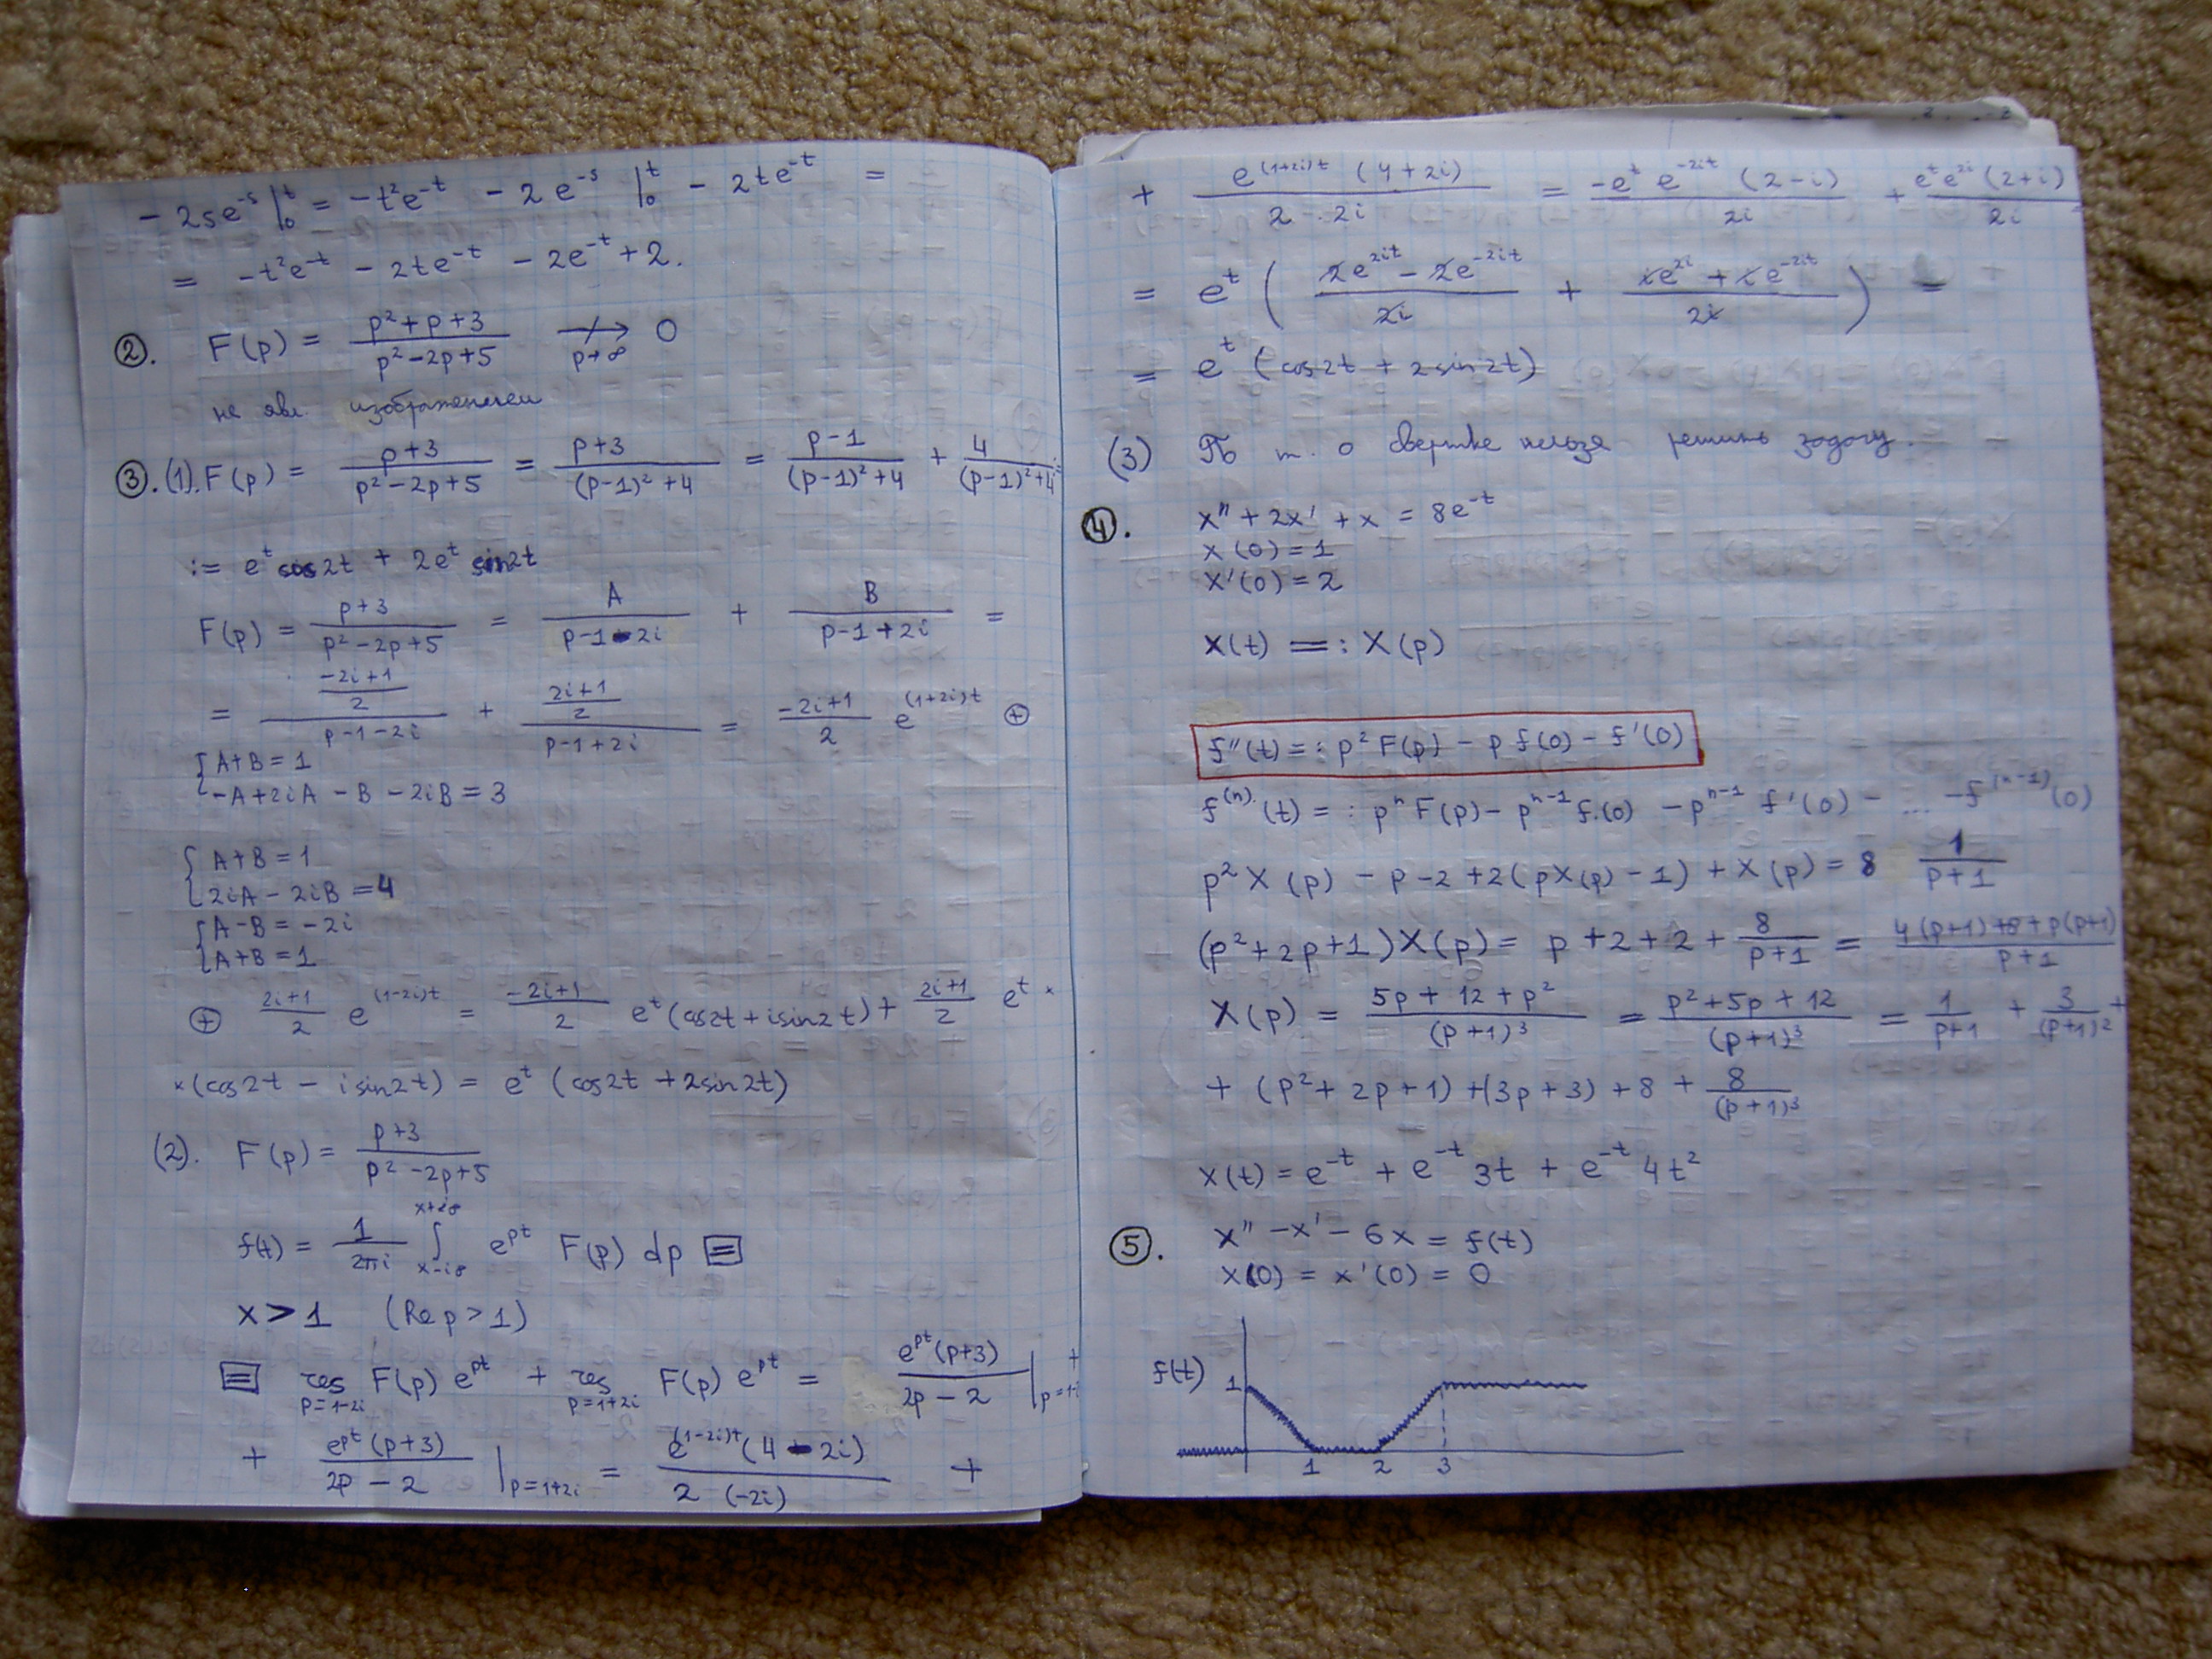 - 2se^{-s} |_0^t = -t²e^{-t} - 2e^{-s} |_0^t - 2te^{-t} =
= -t²e^{-t} - 2te^{-t} - 2e^{-t} + 2.
②. F(p) = (p²+p+3)/(p²-2p+5) ↛_{p→∞} 0
не явл. изображением
③. (1). F(p) = (p+3)/(p²-2p+5) = (p+3)/((p-1)²+4) = (p-1)/((p-1)²+4) + 4/((p-1)²+4) =
:= e^t cos2t + 2e^t sin2t
F(p) = (p+3)/(p²-2p+5) = A/(p-1-2i) + B/(p-1+2i) =
= ((-2i+1)/2)/(p-1-2i) + ((2i+1)/2)/(p-1+2i) = (-2i+1)/2 e^{(1+2i)t} ⊕
{ A+B=1
-A+2iA-B-2iB=3
{ A+B=1
2iA-2iB=4
{ A-B=-2i
A+B=1
⊕ (2i+1)/2 e^{(1-2i)t} = (-2i+1)/2 e^t(cos2t+isin2t) + (2i+1)/2 e^t ×
×(cos2t - isin2t) = e^t (cos2t + 2sin2t)
(2). F(p) = (p+3)/(p²-2p+5)
f(t) = 1/(2πi) ∫_{x-i∞}^{x+i∞} e^{pt} F(p) dp ⊟
x>1 (Re p>1)
⊟ res_{p=1-2i} F(p) e^{pt} + res_{p=1+2i} F(p) e^{pt} = e^{pt}(p+3)/(2p-2) |_{p=1-i} +
+ e^{pt}(p+3)/(2p-2) |_{p=1+2i} = e^{(1-2i)t}(4-2i)/(2(-2i)) +
+ e^{(1+2i)t}(4+2i)/(2·2i) = -e^t e^{-2it}(2-i)/(2i) + e^t e^{2i}(2+i)/(2i) =
= e^t ( (2e^{2it} - 2e^{-2it})/(2i) + (ie^{2i} + ie^{-2it})/(2i) ) =
= e^t (cos2t + 2sin2t)
(3) По т. о свертке нельзя решить задачу.
④. x'' + 2x' + x = 8e^{-t}
x(0)=1
x'(0)=2
x(t) =: X(p)
f''(t) =: p²F(p) - pf(0) - f'(0)
f^{(n)}(t) =: p^n F(p) - p^{n-1} f(0) - p^{n-1} f'(0) - ... - f^{(n-1)}(0)
p²X(p) - p - 2 + 2(pX(p) - 1) + X(p) = 8 1/(p+1)
(p²+2p+1)X(p) = p + 2 + 2 + 8/(p+1) = (4(p+1)+8+p(p+1))/(p+1)
X(p) = (5p+12+p²)/(p+1)³ = (p²+5p+12)/(p+1)³ = 1/(p+1) + 3/(p+1)² +
+ (p²+2p+1) + (3p+3) + 8 + 8/(p+1)³
x(t) = e^{-t} + e^{-t}3t + e^{-t}4t²
⑤. x'' - x' - 6x = f(t)
x(0) = x'(0) = 0
f(t) 1
1 2 3